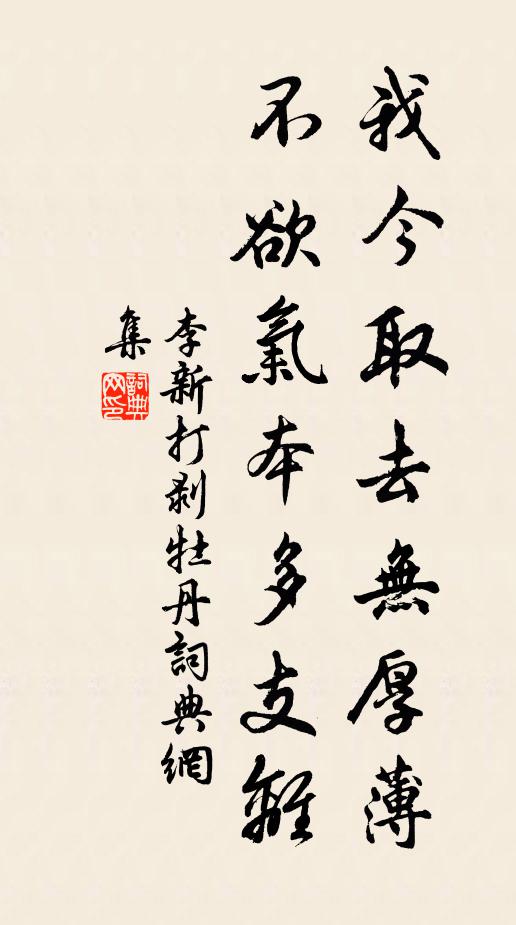 我今取去無厚薄
不欲氣本多支離
李新打剥牡丹詞典網
集
詞典网印